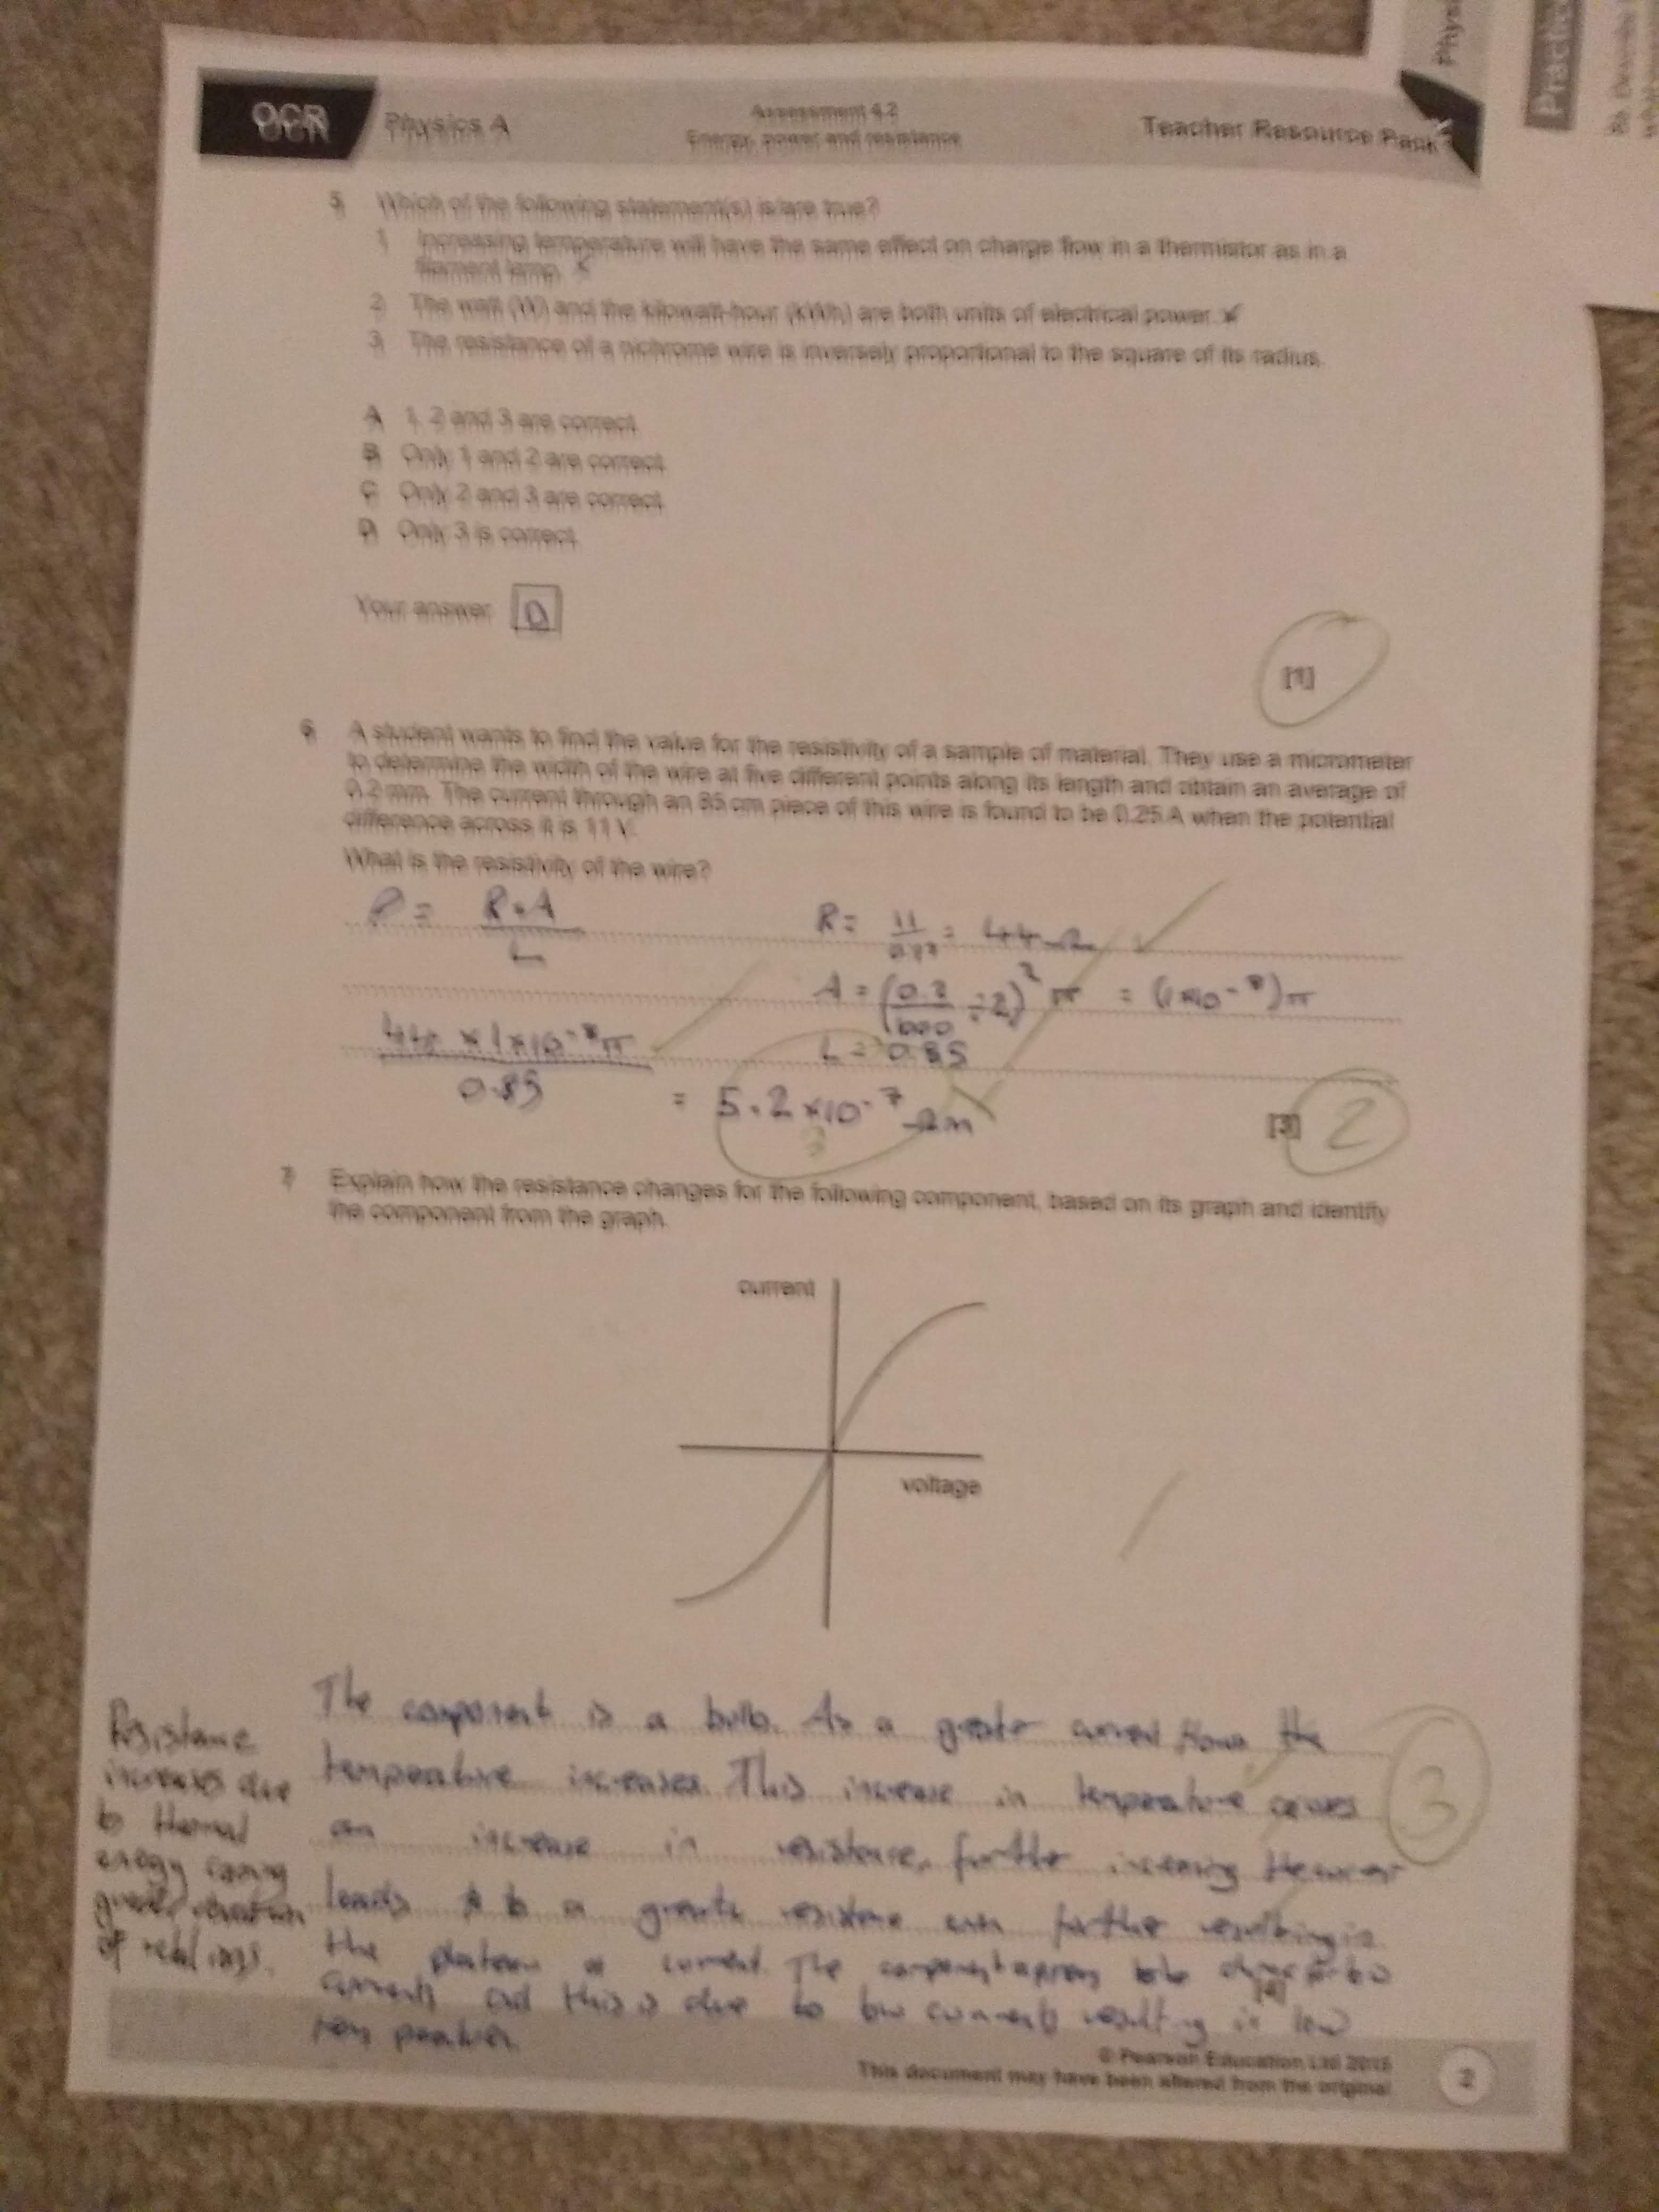 Physics
Practice
OCR Physics A
Assessment 4.2
Energy, power and resistance
Teacher Resource Pack
5 Which of the following statement(s) is/are true?
1 Increasing temperature will have the same effect on charge flow in a thermistor as in a
filament lamp. x
2 The watt (W) and the kilowatt-hour (kWh) are both units of electrical power. x
3 The resistance of a nichrome wire is inversely proportional to the square of its radius.
A 1, 2 and 3 are correct
B Only 1 and 2 are correct
C Only 2 and 3 are correct
D Only 3 is correct
Your answer D
[1]
6 A student wants to find the value for the resistivity of a sample of material. They use a micrometer
to determine the width of the wire at five different points along its length and obtain an average of
0.2 mm. The current through an 85 cm piece of this wire is found to be 0.25 A when the potential
difference across it is 11 V.
What is the resistivity of the wire?
ρ = R×A / L
R = 11 / = 44Ω
A = (0.2 / 1000 ÷2)² π = (1×10⁻⁸)π
44 × 1×10⁻⁸π / 0.85
L = 0.85
= 5.2×10⁻⁷ Ωm
[3] 2
7 Explain how the resistance changes for the following component, based on its graph and identify
the component from the graph.
current
voltage
The component is a bulb. As a greater current flows the
temperature increases. This increase in temperature causes
an increase in resistance, further increasing the current
leads to a greater resistance even further resulting in
the plateau of current. The component appears to be ohmic for low
currents and this is due to low currents resulting in low
temperatures.
3
Resistance
increases due
to thermal
energy causing
greater vibration
of metal ions.
© Pearson Education Ltd 2015
This document may have been altered from the original
2